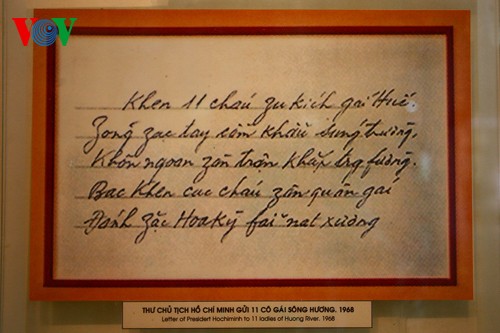 VOV
Khen 11 cháu zu kích gái Huế,
Zõng zạc tay cầm khẩu súng trường,
Khôn ngoan zàn trận khắp fường.
Bac khen cac cháu zân quân gái
Đánh zặc Hoa Kỳ fai nat xương
THƯ CHỦ TỊCH HỒ CHÍ MINH GỬI 11 CÔ GÁI SÔNG HƯƠNG. 1968
Letter of Presidert Hochiminh to 11 ladies of Huong River. 1968